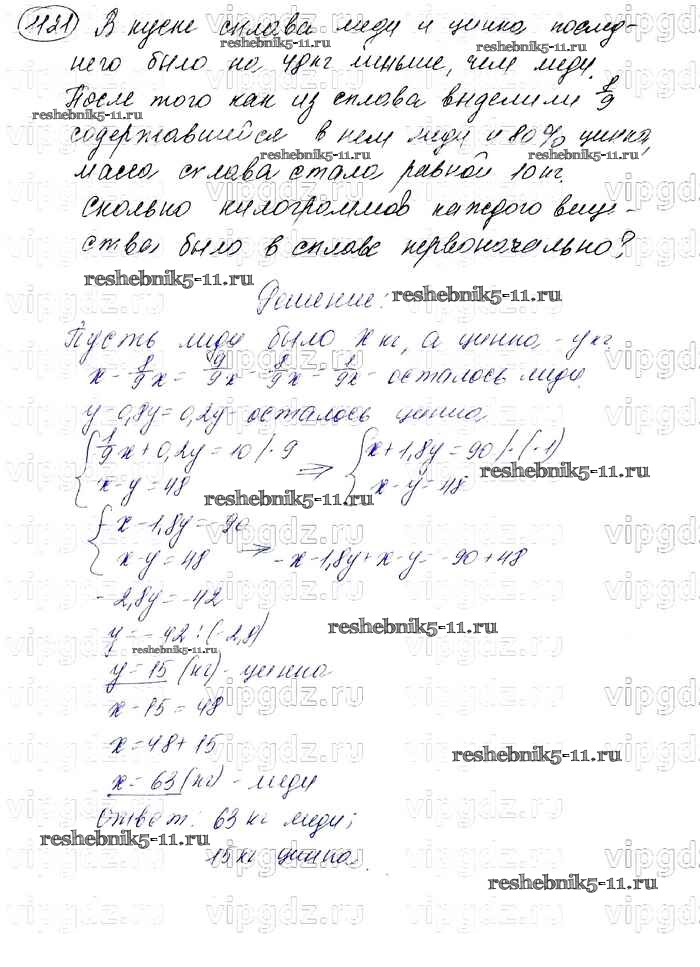 1121 В куске сплава меди и цинка послед-
него было на 48кг меньше, чем меди.
После того как из сплава выделили 8/9
содержавшейся в нем меди и 80% цинка,
масса сплава стала равной 10кг.
Сколько килограммов каждого веще-
ства было в сплаве первоначально?
Решение:
Пусть меди было x кг, а цинка - y кг.
x - 8/9x = 9/9x - 8/9x = 1/9x - осталось меди
y - 0,8y = 0,2y - осталось цинка
{ 1/9x + 0,2y = 10 | · 9 ⇒ { x + 1,8y = 90 | · (-1)
x - y = 48 x - y = 48
{ - x - 1,8y = -90
x - y = 48 ⇒ - x - 1,8y + x - y = -90 + 48
- 2,8y = -42
y = -42 : (-2,8)
y = 15 (кг) - цинка
x - 15 = 48
x = 48 + 15
x = 63 (кг) - меди
Ответ: 63 кг меди;
15 кг цинка.
reshebnik5-11.ru
vipgdz.ru